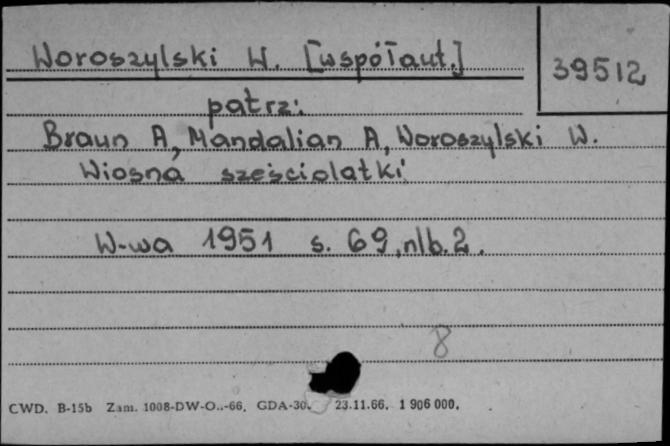 Woroszylski W. [współaut.]
39512
patrz:
Braun A, Mandalian A, Woroszylski W.
Wiosna sześciolatki
W-wa 1951 s. 69, nlb. 2.
8
CWD. B-15b Zam. 1008-DW-O..-66. GDA-30. 23.11.66. 1 906 000.